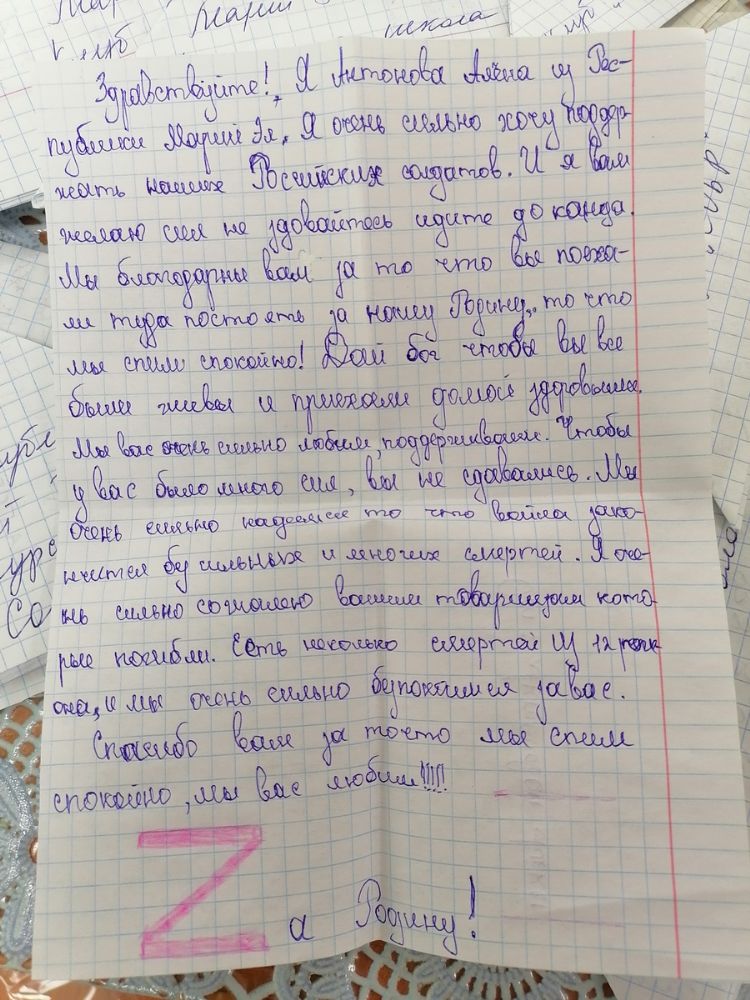 Мари
Марий
школа
Здравствуйте! Я Антонова Алёна из Рес-
публики Марий Эл. Я очень сильно хочу поддер-
жать наших Российских солдатов. И я вам
желаю сил не здовайтесь идите до конца.
Мы благодарны вам за то что вы поеха-
ли туда постоять за нашу Родину, то что
мы спим спокойно! Дай бог чтобы вы все
были живы и приехали домой здоровыми.
Мы вас очень сильно любим, поддерживаем. Чтобы
у вас было много сил, вы не сдавались. Мы
очень сильно надеемся то что война зако-
нчится бу сильных и многих смертей. Я оче-
нь сильно сочалею вашим товарищам кото-
рые погибли. Есть несколько смертей из 12
и мы очень сильно безпокоимся за вас.
Спасибо вам за то что мы спим
спокойно, мы вас любим!!!!!
Zа Родину!